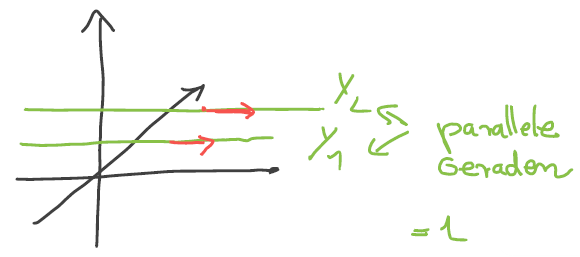 γ₂
γ₁
parallele
Geraden
= L